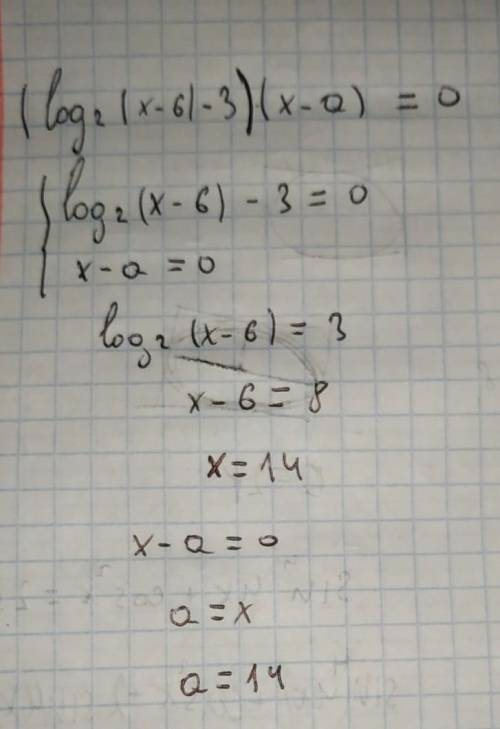 (log₂(x-6)-3)·(x-a) = 0
{ log₂(x-6) - 3 = 0
x-a = 0
log₂(x-6) = 3
x-6 = 8
x = 14
x-a = 0
a = x
a = 14